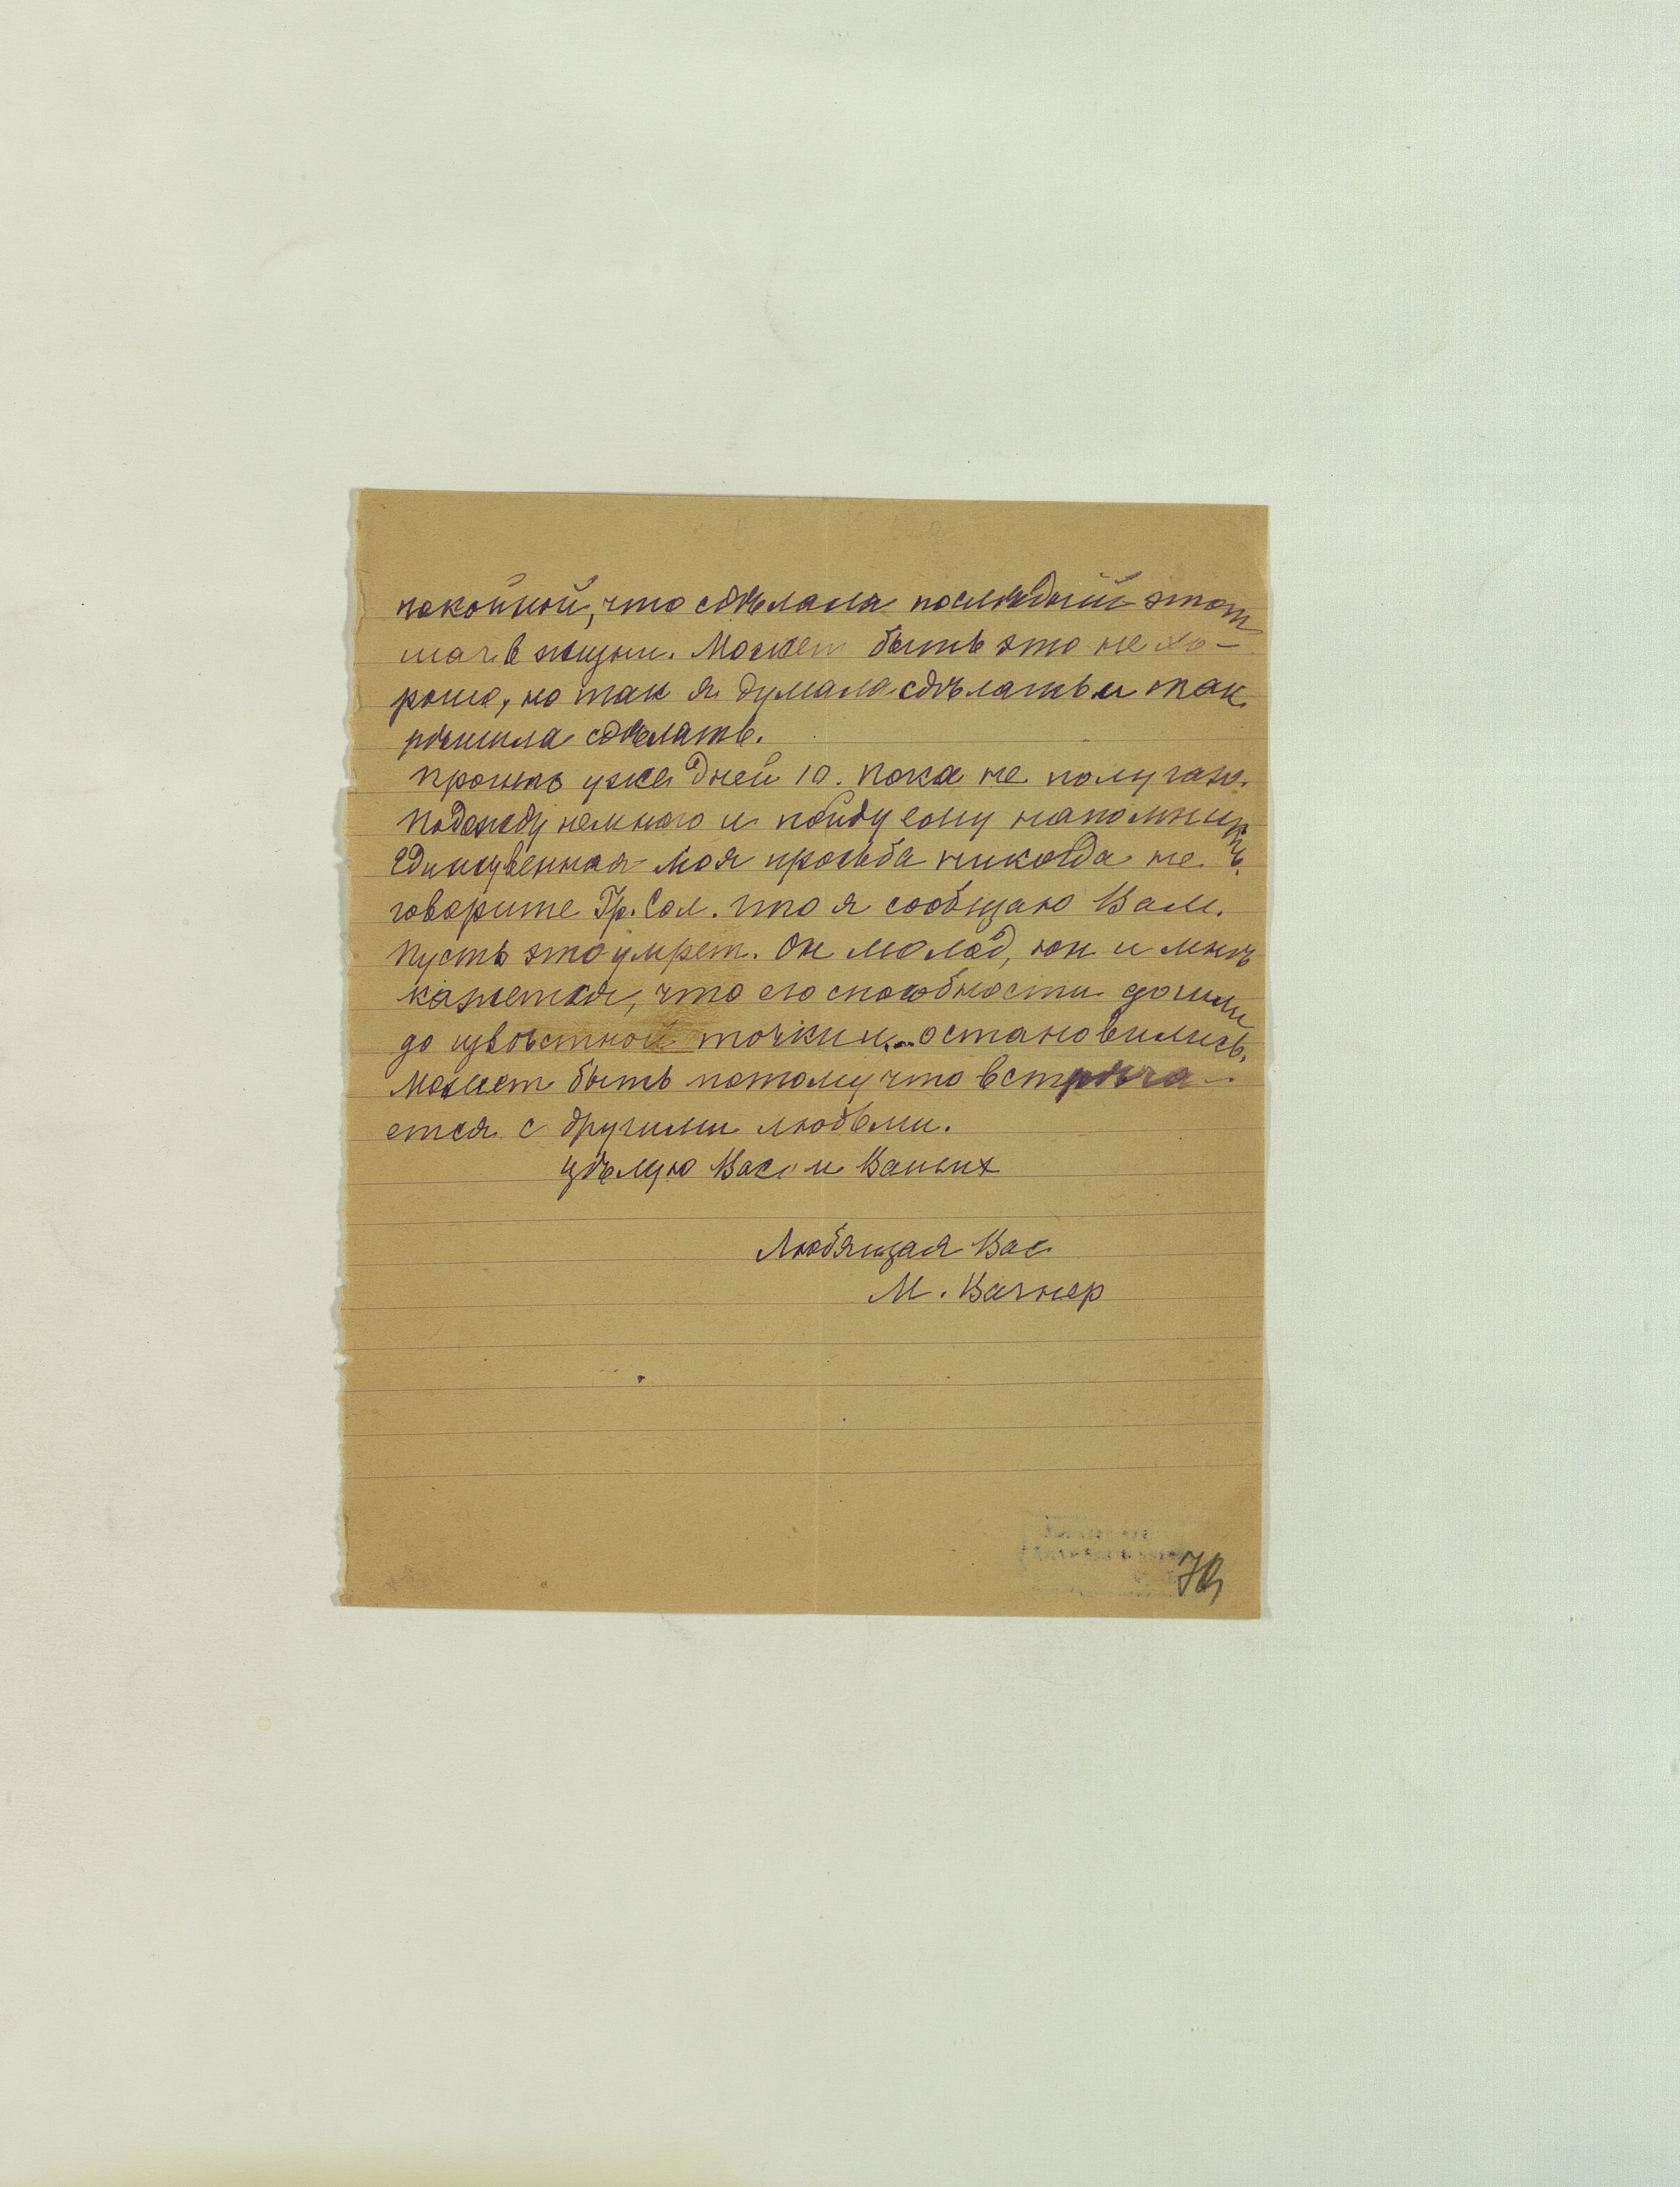 покойной, что сдѣлала послѣдний этот
шаг в жизни. Может быть это не хо-
рошо, но так я думала сдѣлать и так
рѣшила сдѣлать.
Прошло уже дней 10. Пока не получаю.
Подожду немного и пойду ему напомнить.
Единственная моя просьба никогда не
говорите Гр. Сол. что я сообщаю Вам.
Пусть это умрет. Он молод, юн и мнѣ
кажется, что его способности дошли
до извѣстной точки и... остановились.
Может быть потому что встрѣча-
ется с другими людьми.
Цѣлую Вас и Ваших
Любящая Вас
М. Вагнер